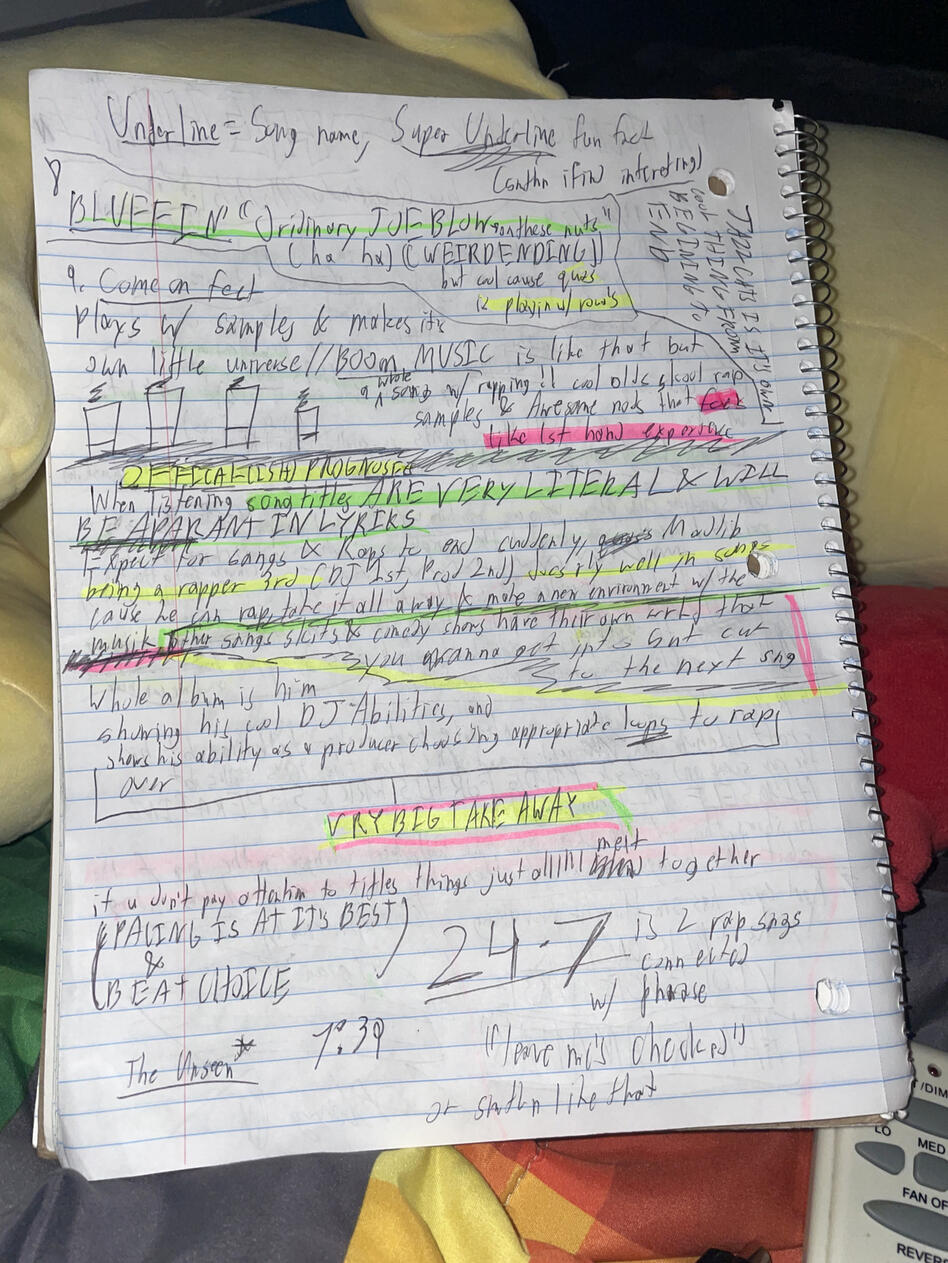 Underline = Song name, Super Underline fun fact
(smthn ifin intereting)
8
BLUFFIN "Oridinary JOE BLOW sonthese nuts"
(ha ha) (WEIRDENDING)
but cool cause quas
iz playin w/ row's
JAZZ CATS IS IT'S OWN
COOL THING FROM
BEGINING TO
END
9. Come on feet
plays w/ samples & makes its
own little universe // BOOM MUSIC is like that but
a whole song w/ rapping cool olds skool rap
samples & Awesome nods that feel
like 1st hand experience
OFFICAL(ISH) PROGNOSES
When listening song titles ARE VERY LITERAL & WILL
BE APARANT IN LYRIKS
Expect for songs & Raps to end suddenly, Madlib
being a rapper 3rd (DJ 1st, Prod 2nd) does rly well in songs
cause he can rap, take it all away & make a new environment w/ the
musik other songs skits & comedy shows have their own world that
you wanna get into but cut
to the next sng
Whole album is him
showing his cool DJ-Abilities, and
shows his ability as a producer choosing appropriate loops to rap
over
VRY BIG TAKE AWAY
if u don't pay attention to titles things just allllll melt together
(PACING IS AT IT'S BEST)
&
BEAT CHOICE
24-7 is 2 rap sngs
connected
w/ phrase
"leave mc's checked"
or smthn like that
The Unseen*
7:39
/DIM
LO
MED
FAN OF
REVER